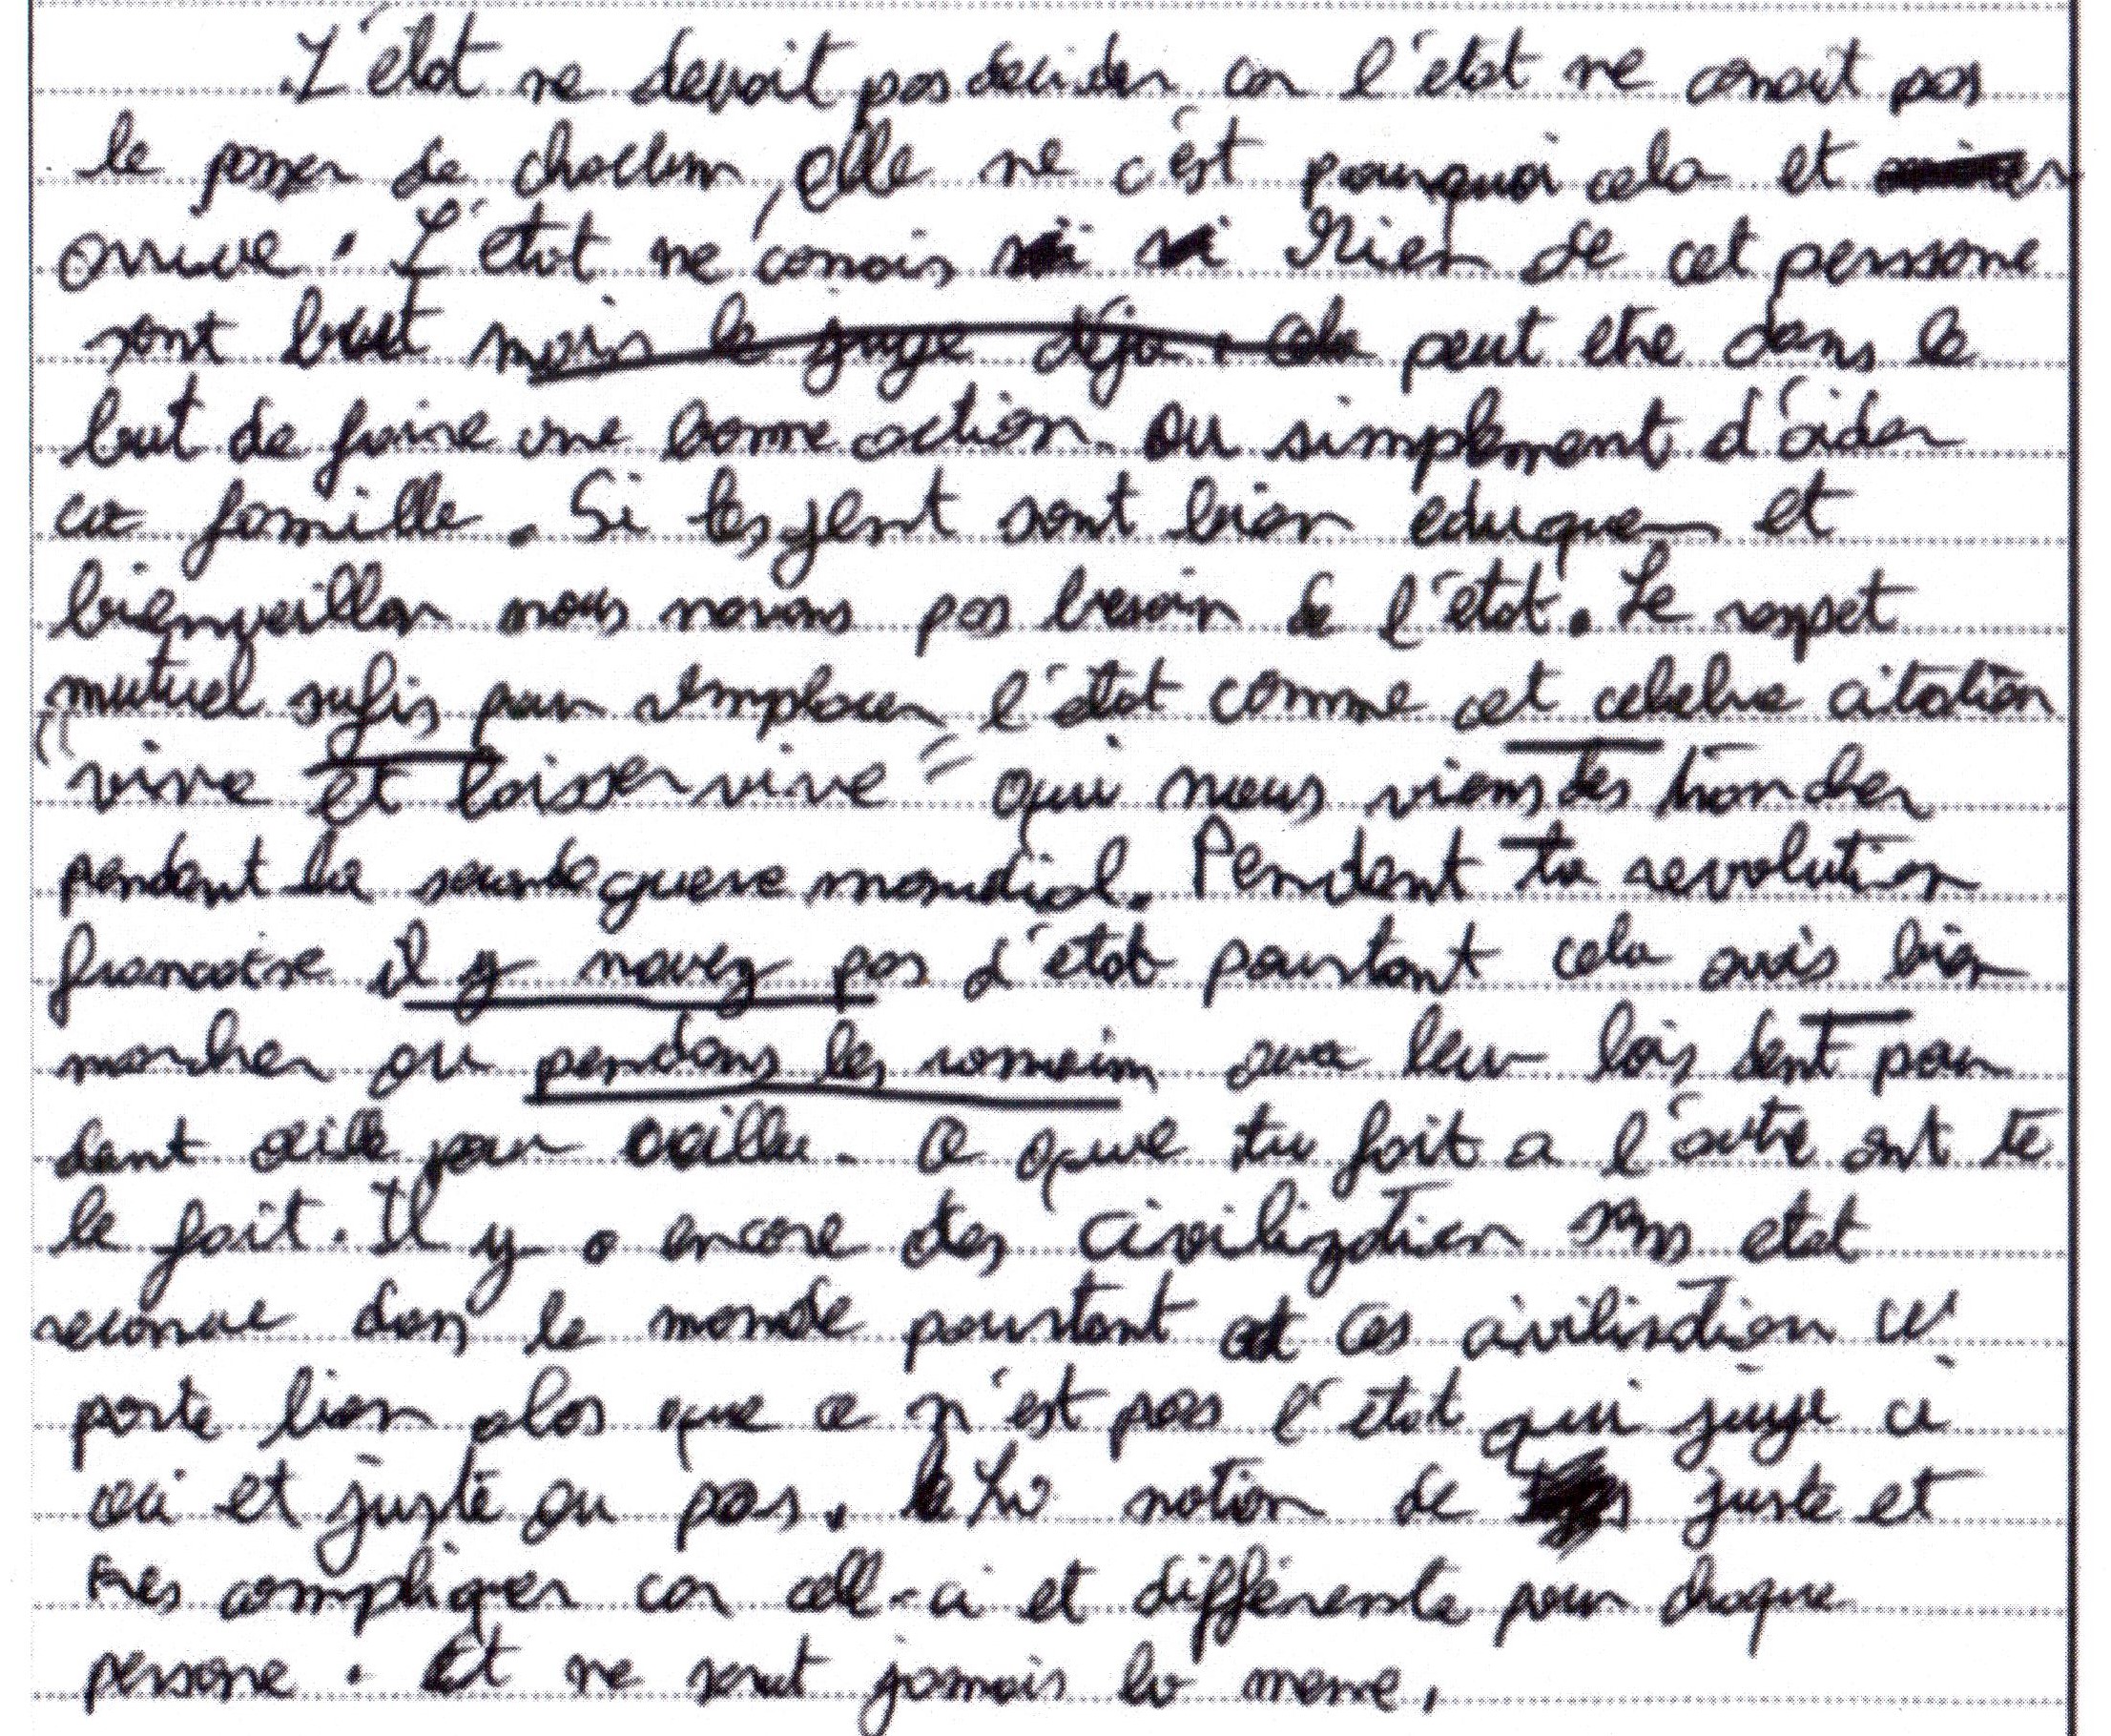 L'état ne devait pas decider car l'état ne conait pas
le passer de chacun, elle ne c'est pourquoi cela et
arrive. L'état ne conais Rien de cet perssone
sont but mais le juge déja. Cela peut etre dans le
but de faire une bonne action ou simplement d'aider
ca famille. Si les gent sont bien eduquer et
bienveillan nous navons pas besoin de l'état. Le respet
mutuel sufis pour remplacer l'état comme cet celebre citation
"vivre et laisser vivre" qui nous viens des trancher
pendant la seconde guere mondial. Pendent la revolution
francaise il y navez pas d'état pourtant cela avais bien
marcher ou pendans les romain avec leur lois dent pour
dent oeille pour oeille. Ce que tu fait a l'autre ont te
le fait. Il y a encore des civilization sans etat
reconue dans le monde pourtant ces civilisation ce
porte bien alos que ce n'est pas l'état qui juge ci
ceci et juste ou pas. La notion de juste et
tres compliquer car cell-ci et différente pour chaque
persone. Et ne serat jamais la meme.